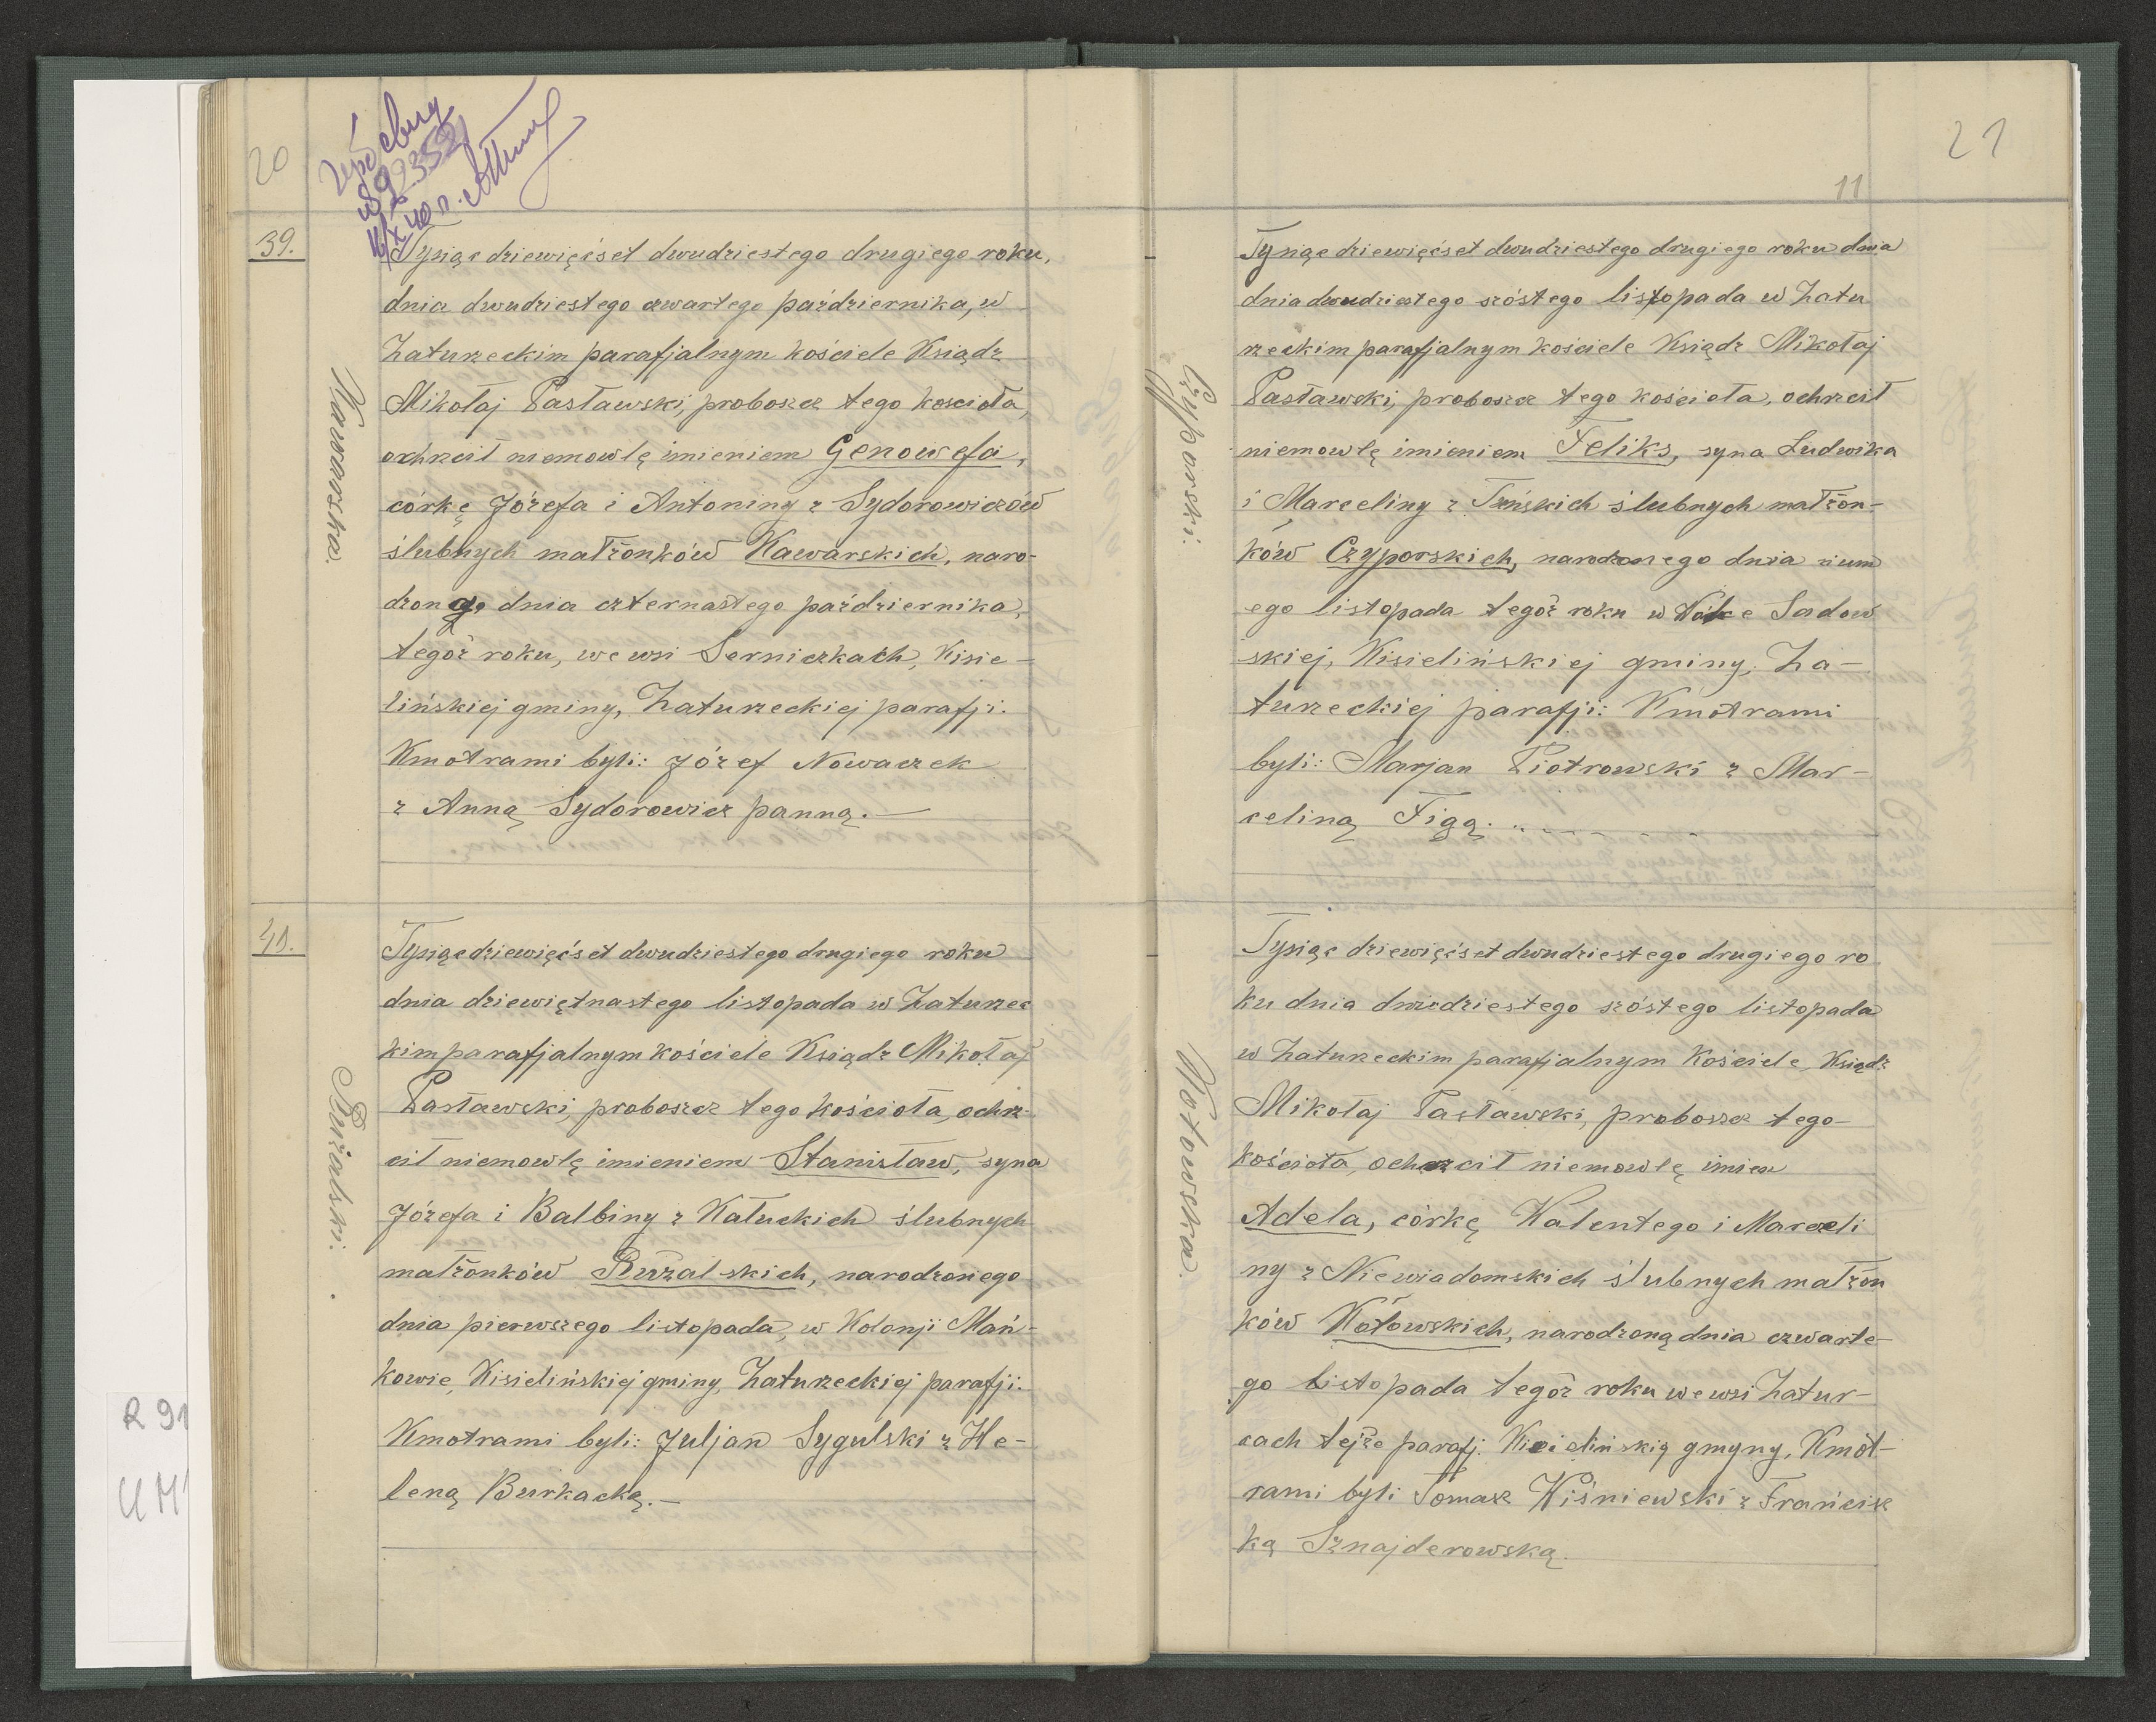 20
39.
Kawarska.
Tysiąc dziewięćset dwudziestego drugiego roku,
dnia dwudziestego czwartego października, w
Zaturzeckim parafjalnym kościele Ksiądz
Mikołaj Pasławski, proboszcz tego kościoła,
ochrzcił niemowlę imieniem Genowefa,
córkę Józefa i Antoniny z Sydorowiczów
ślubnych małżonków Kawarskich, naro-
dzoną dnia czternastego października,
tegoż roku, we wsi Serniczkach, Kisie-
lińskiej gminy, Zaturzeckiej parafji.
Kmotrami byli: Józef Nowaczek
z Anną Sydorowicz panną.—
40.
Rużalski.
Tysiąc dziewięćset dwudziestego drugiego roku
dnia dziewiętnastego listopada w Zaturzec
kim parafjalnym kościele Ksiądz Mikołaj
Pasławski, proboszcz tego kościoła, ochrz-
cił niemowlę imieniem Stanisław, syna
Józefa i Balbiny z Kałuckich ślubnych
małżonków Rużalskich, narodzonego
dnia pierwszego listopada, w Kolonji Mań-
kowie, Kisielińskiej gminy, Zaturzeckiej parafji.
Kmotrami byli: Juljan Sygulski z He-
leną Burkacką.—
21
11
Czyporski.
Tysiąc dziewięćset dwudziestego drugiego roku dnia
dnia dwudziestego szóstego listopada w Zatu
rzeckim parafjalnym kościele Ksiądz Mikołaj
Pasławski, proboszcz tego kościoła, ochrzcił
niemowlę imieniem Feliks, syna Ludwika
i Marceliny z ślubnych małżon-
ków Czyporskich, narodzonego dnia
ego listopada tegoż roku w Wólce Sadow
skiej, Kisielińskiej gminy, Za-
turzeckiej parafji: Kmotrami
byli: Marjan Piotrowski z Mar-
celiną Figą.
Kotowska.
Tysiąc dziewięćset dwudziestego drugiego ro
ku dnia dwudziestego szóstego listopada
w Zaturzeckim parafjalnym Kościele Ksiądz
Mikołaj Pasławski, proboszcz tego
kościoła, ochrzcił niemowlę imien
Adela, córkę Walentego i Marceli
ny z Niewiadomskich ślubnych małżon
ków Kotowskich, narodzoną dnia czwarte-
go listopada tegoż roku we wsi Zatur-
cach tejże parafj. Kisielińskiej gmyny, Kmot-
rami byli Tomasz Wiśniewski z Francisz
ką Sznajderowską.
R 91